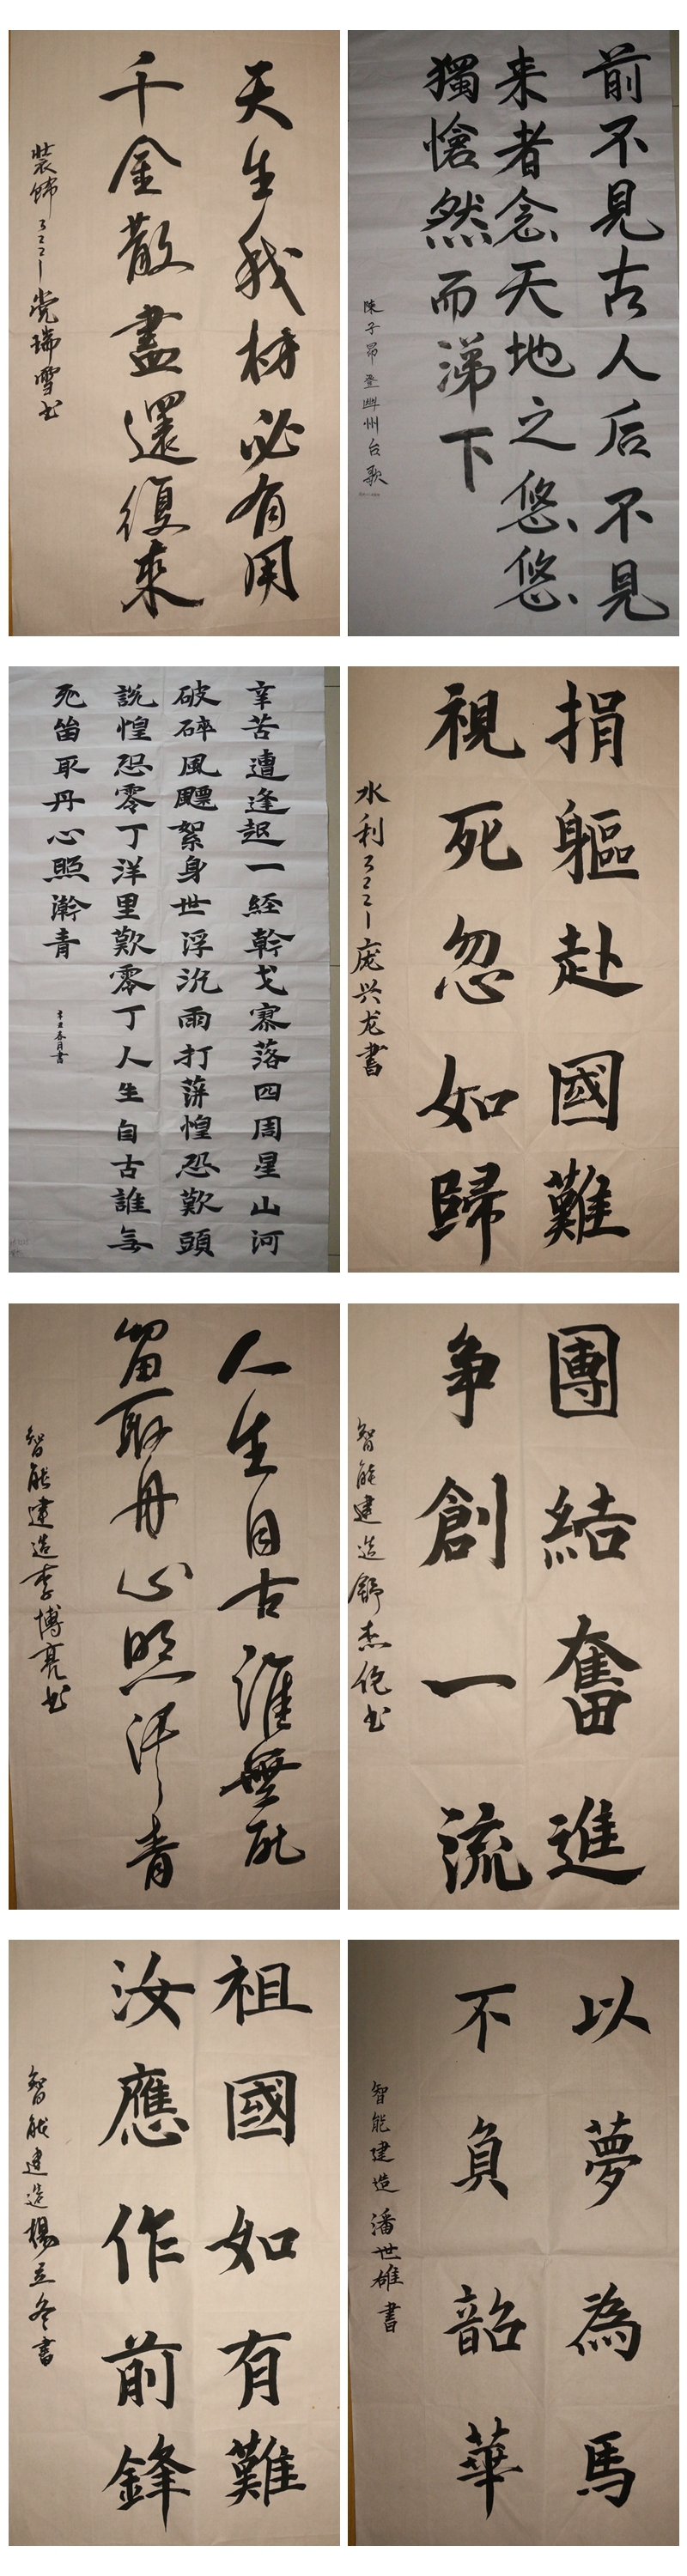 天生我材必有用
千金散盡還復來
装饰3221党瑞雪书
前不見古人后不見
来者念天地之悠悠
獨愴然而涕下
陳子昂登幽州台歌
辛苦遭逢起一經幹戈寥落四周星山河
破碎風飄絮身世浮沉雨打萍惶恐歎頭
説惶恐零丁洋里歎零丁人生自古誰無
死留取丹心照澣青
辛丑春月書
捐軀赴國難
視死忽如歸
水利3221庞兴龙書
人生自古誰無死
留取丹心照汗青
智能建造李博亮书
團結奮進
争創一流
智能建造舒杰伦书
祖國如有難
汝應作前鋒
智能建造楊立冬書
以夢為馬
不負韶華
智能建造潘世雄書